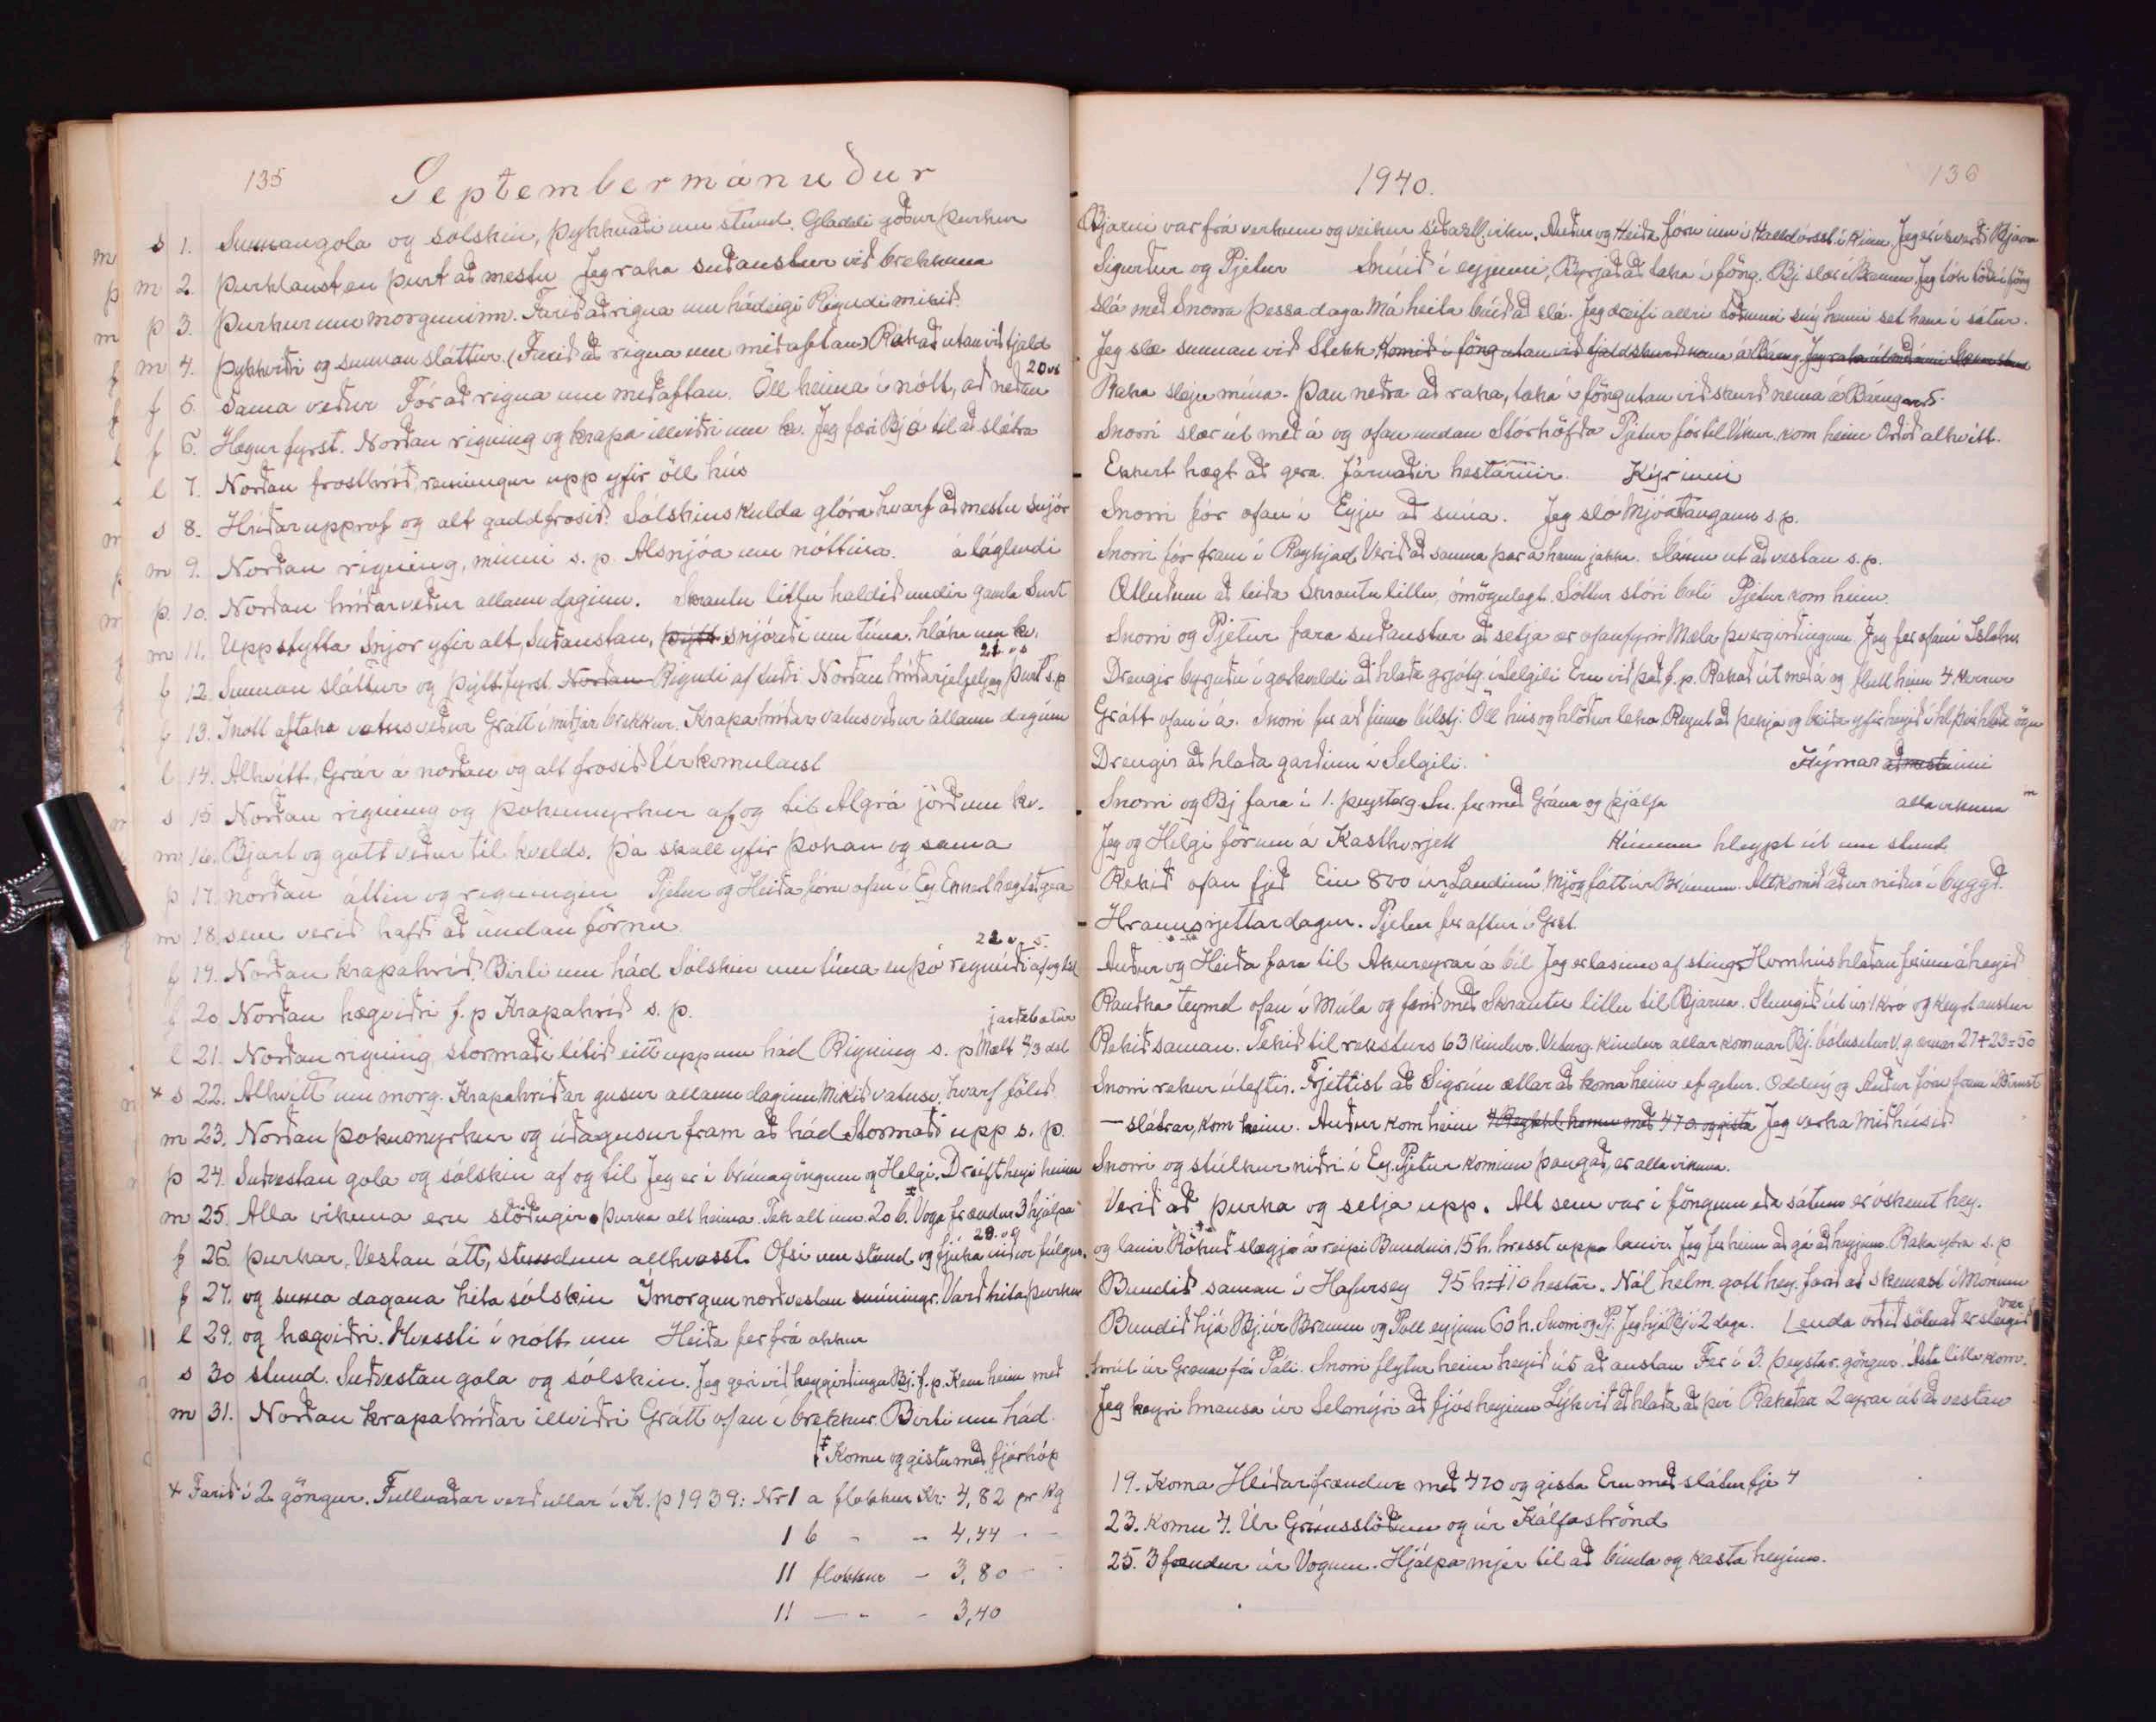 135
Septembermánuður
s 1. Sunnangola og sólskin, þykknaði um stund. Gladdi góður þurkur
m 2. Þurklaust en þurt að mestu Jeg raka suðaustur við brekkuna
þ 3. Þurkur um morguninn. Farið að rigna um hádeigi Rigndi mikið.
m 4. Þykkviðri og sunnan sláttur. (Farið að rigna um miðaftan) Rakað utan við tjald
20 vs
f 5. Sama veður Fór að rigna um miðaftan. Öll heima í nótt, að neðan
f 6. Hægur fyrst. Norðan rigning og krapa illviðri um kv. Jeg færi Bj á til að slátra
l 7. Norðan frosthríð, renningur upp yfir öll hús
s 8. Hríðarupprof og alt gaddfrosið. Sólskins kulda glóra hvarf að mestu snjór
m 9. Norðan rigning, minni s. p. Alsnjóa um nóttina. á láglendi
þ. 10. Norðan hríðarveður allann daginn. Skrautu litlu haldið undir gamla Surt
m 11. Uppstytta Snjór yfir alt, Suðaustan, þýtt snjóaði um tíma, hláka um kv.
21 vs
f 12. Sunnan sláttur og þýtt fyrst. Norðan Rigndi af suðri Norðan hríðarjeljeljag þurt s.p
f 13. Í nótt aftaka vatnsveður Grátt í miðjar brekkur. Krapahríðar vatnsveður allann daginn
l 14. Alhvítt, Grár á norðan og alt frosið Úrkomulaust
s 15 Norðan rigning og þokumyrkur af og til Algrá jörð um kv.
m 16. Bjart og gott veður til kvelds. Þá skall yfir þokan og sama
þ 17. norðan áttin og rigningin Pjetur og Heiða fóru ofan í Ey. Ekkert hægt að gera
m 18. sem verið hafði að undan förnu
22 v. s.
f 19. Norðan krapahríð. Birti um hád Sólskin um tíma en þó regnúði af og til
f 20 Norðan hægviðri f. p Krapahríð s. p.
jarðabætur
l 21. Norðan rigning stormaði lítið eitt upp um hád Rigning s. p Mælt
+ s 22. Alhvítt um morg. Krapahríðar gusur allann daginn Mikið vatnsv, hvarf fölið
m 23. Norðan þokumyrkur og úðagusur fram að hád Stormaði upp s. p.
þ 24. Suðvestan gola og sólskin af og til Jeg er í brúnagöngum og Helgi. Dreift heyi heima
m 25. Alla vikuna eru stöðugir. Þurka alt heima. Tek alt inn. 20 b. Voga frændur 3 hjálpa
f 26. þurkar. Vestan átt, stundum allhvasst. Ofsi um stund og fjúka niður fúlgur.
f 27. og suma dagana hita sólskin Í morgun norðvestan snúningr. Varð hita þurkur
l 29. og hægviðri. Hvessti í nótt um Heiða fer frá okkur
s 30 stund. Suðvestan gola og sólskin. Jeg geri við heygirðingu Bj. f. p. Kem heim með
m 31. Norðan krapahríðar illviðri Grátt ofan í brekkur. Birti um hád.
‡ Komu og gistu með fjárhóp
+ Farið í 2 göngur. Fullnaðar verð ullar í K.þ 1939: Nr 1 a flokkur Kr: 4,82 pr kg
1 b - - 4,44 - -
11 flokkur - 3,80 - -
11 — - - 3,40
1940.
136
Bjarni var frá verkum og veikur síðastl. viku. Auður og Heiða fóru inn í Halldórsst. í Kinn. Jeg er í sverði Bjarna
Sigurður og Pjetur Snúið í eyjunni, Byrjað að taka í föng. Bj. slær í Brennu. Jeg tók töðu í föng
slá með Snorra þessa daga Má heita búið að slá. Jeg dreifi allri töðunni sný henni set hana í sátur.
Jeg slæ sunnan við Stekk Komið í föng utan við tjaldskurð nema á Báng. Jeg raka
Raka slægju mína. Þau neðra að raka, taka í föng utan við skurð nema á Bángarð.
Snorri slær út með á og ofan undan Stórhöfða Pjetur fór til Víkur. kom heim Orðið alhvítt.
Ekkert hægt að gera. Járnaðir hestarnir. Kýr inni
Snorri fór ofan í Eyju að snúa. Jeg sló Mjóatangann s.p.
Snorri fór fram í Reykjad. Verið að sauma par á hann jakka. Sláum út að vestan s.p.
Ætluðum að leiða Skrautu litlu, ómögulegt. Sóttur stóri boli Pjetur kom heim.
Snorri og Pjetur fara suðaustur að setja ær ofan fyrir Mæla þvergirðingum. Jeg fer ofan í Slátur
Drengir byrjuðu í gærkveldi að hlaða grjótg. í Selgili Eru við það f. p. Rakað út með á og flutt heim 4. kerrur
Grátt ofan í á. Snorri fer að finna bílstj. Öll hús og hlöður leka Reynt að þekja og breiða yfir heyið í hl.
Drengir að hlaða garðinn í Selgili. Kýrnar að mestu inni
Snorri og Bj fara í 1. þeystarg Sn. fer með Grána og þjálfa alla vikuna
Jeg og Helgi förum á Kasthverjell Kúnum hleypt út um stund
Rekið ofan fjeð Ein 800 úr „Landinu“ Mjög fátt úr Brúnum. Alt komið áður niður í byggð.
Hraunsrjettardagur. Pjetur fer aftur í Grst.
Auður og Heiða fara til Akureyrar á bíl Jeg er lasinn af sting. Hornhús hlaðan finn áheyið
Rauðka teymd ofan í Múla og farið með Skrautu litlu til Bjarna. Stungið út úr 1 kró og keyrt austur
Rekið saman. Tekið til reksturs 63 kindur. Veturg. kindur allar komnar Bj. bólusetur v.g. ærnar 27+23=50
Snorri rekur úteftir. Frjettist að Sigrún ætlar að koma heim ef getur. Oddný og Auður fóru fram í Brúnst
— slátrar, kom heim. Auður kom heim Jeg verka miðhúsið
Snorri og stúlkur niðri í Ey. Pjetur kominn þangað, er alla vikuna.
Verið að þurka og setja upp. Alt sem var í föngum eða sátum er óskemt hey.
og lanir Rökuð slægja á reipi Bundnir 15 h. hresst uppa lanir. Jeg fer heim að gá að heyjum. Raka ytra s. p
Bundið saman í Hafursey 95 h = 110 hestar. Nál helm. gott hey. farið að skemast í Mónum
Bundið hjá Bj. úr Brennu og Poll eyjunni 60 h. Snorri og Pj. Jeg hjá Bj í 2 daga. Lenda orðið sölnað er slægið var
úr Grænu frá Páli. Snorri flytur heim heyið út að austan Fer í 3. þeystar. göngur. Ásta litla kom.
Jeg keyri hnausa úr Selmýri að fjósheyinu Lýk við að hlaða að því Rakaðar 2 ærar út að vestan
19. Koma Heiðarfrændur með 470 og gista Eru með sláturfje 4
23. Komu 4. Úr Grímsstöðum og úr Kálfaströnd
25. 3 frændur úr Vogum. Hjálpa mjer til að binda og kasta heyinu.